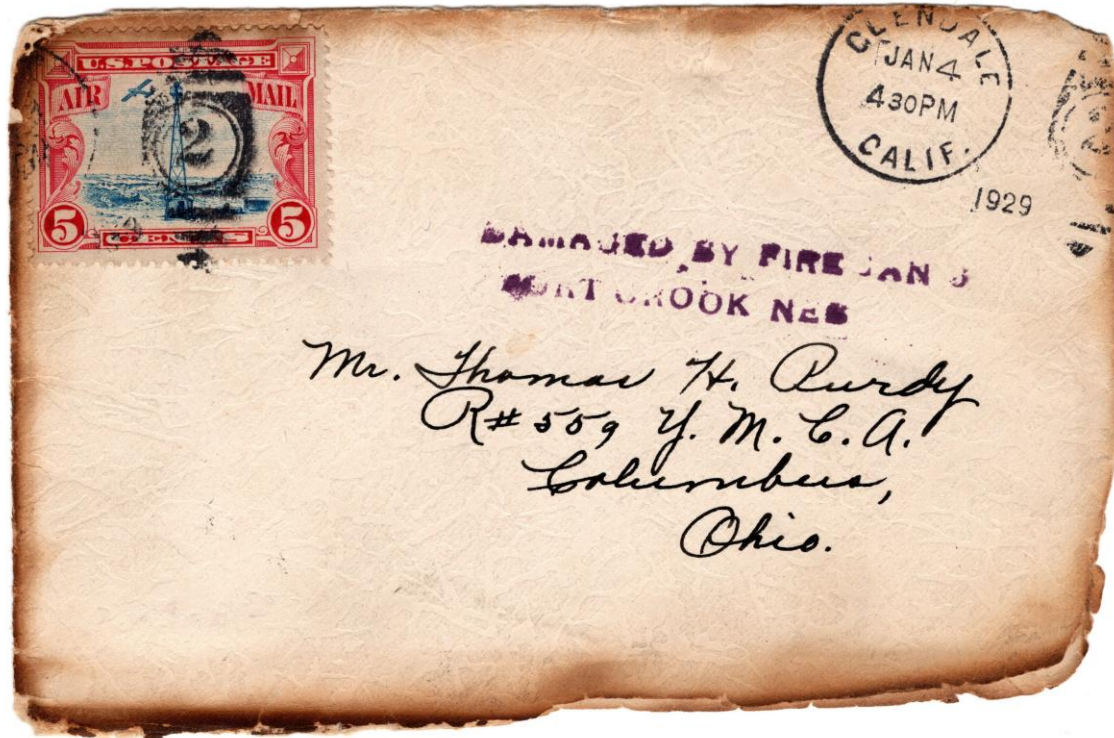 U.S. POSTAGE
AIR MAIL
2
5 CENTS 5
GLENDALE
JAN 4
430 PM
CALIF.
1929
DAMAGED BY FIRE JAN
FORT CROOK NEB
Mr. Thomas H. Purdy
R# 559 Y. M. C. A.
Columbus,
Ohio.